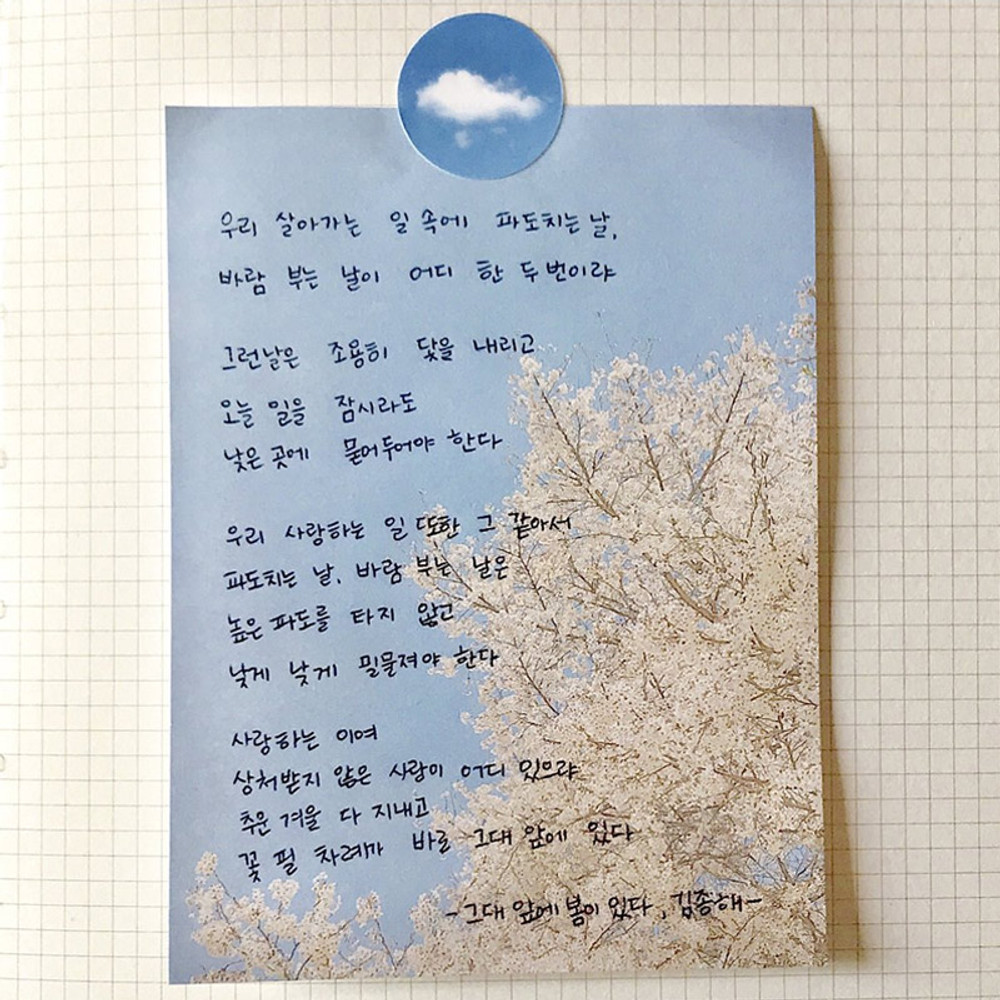 우리 살아가는 일 속에 파도치는 날,
바람 부는 날이 어디 한 두번이랴
그런날은 조용히 닻을 내리고
오늘 일을 잠시라도
낮은 곳에 묻어두어야 한다
우리 사랑하는 일 또한 그 같아서
파도치는 날, 바람 부는 날은
높은 파도를 타지 않고
낮게 낮게 밀물져야 한다
사랑하는 이여
상처받지 않은 사람이 어디 있으랴
추운 겨울 다 지내고
꽃 필 차례가 바로 그대 앞에 있다
- 그대 앞에 봄이 있다, 김종해 -